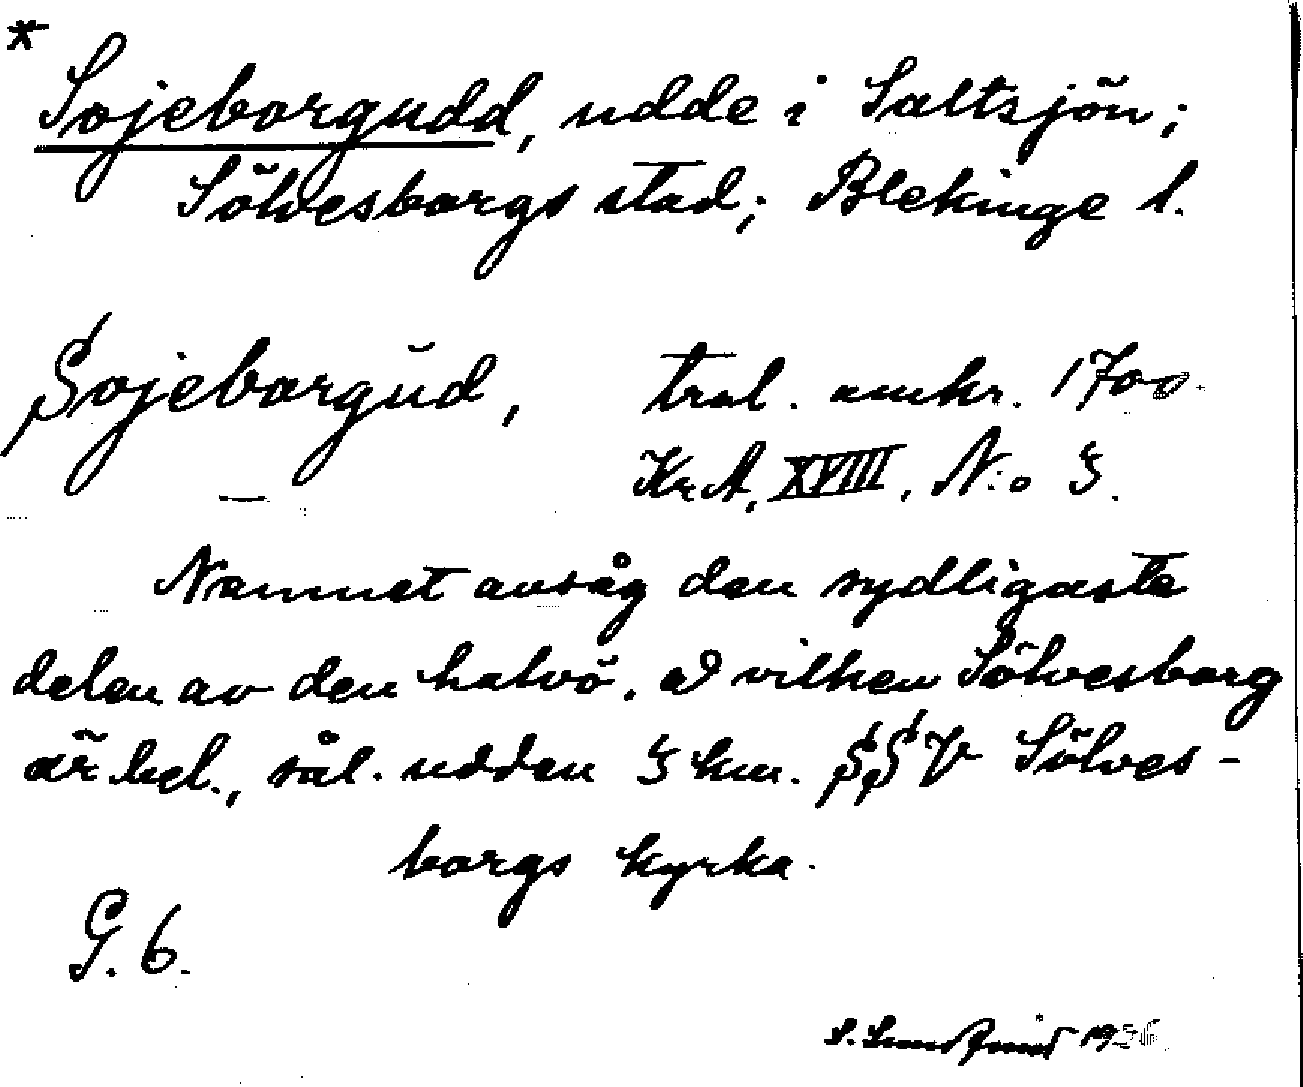 *
Sojeborgudd, udde i Saltsjön;
Sölvesborgs stad; Blekinge l.
Sojeborgŭd, tral. omkr. 1700
KrA, XVIII, N:o 3.
Namnet avsåg den sydligaste
delen av den halvö, å vilken Sölvesborg
är bel., sål. udden 3 km. SSV Sölves-
borgs kyrka.
G. 6.